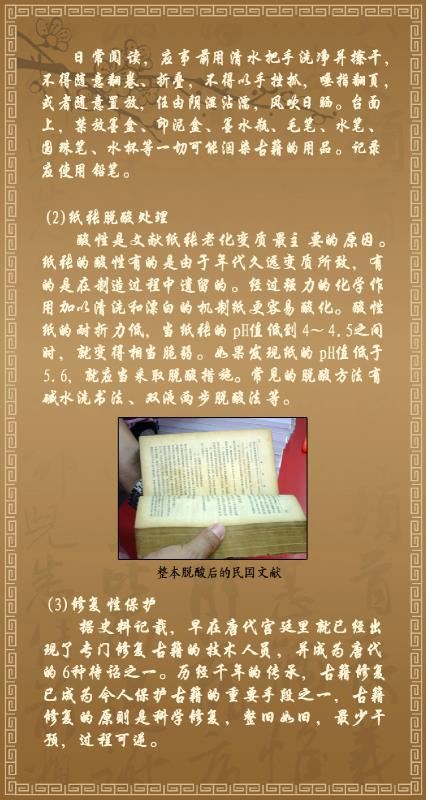 日常阅读，应事前用清水把手洗净并擦干，
不得随意翻卷、折叠，不得以手挫抓，唾指翻页，
或者随意置放，任由阴湿沾濡，风吹日晒。台面
上，禁放墨盒、印泥盒、墨水瓶、毛笔、水笔、
圆珠笔、水杯等一切可能洇染古籍的用品。记录
应使用铅笔。
(2)纸张脱酸处理
酸性是文献纸张老化变质最主要的原因。
纸张的酸性有的是由于年代久远变质所致，有
的是在制造过程中遗留的。经过强力的化学作
用加以清洗和漂白的机制纸更容易酸化。酸性
纸的耐折力低，当纸张的pH值低到4～4.5之间
时，就变得相当脆弱。如果发现纸的pH值低于
5.6，就应当采取脱酸措施。常见的脱酸方法有
碱水洗书法、双液两步脱酸法等。
整本脱酸后的民国文献
(3)修复性保护
据史料记载，早在唐代宫廷里就已经出
现了专门修复古籍的技术人员，并成为唐代
的6种待诏之一。历经千年的传承，古籍修复
已成为今人保护古籍的重要手段之一，古籍
修复的原则是科学修复，整旧如旧，最少干
预，过程可逆。